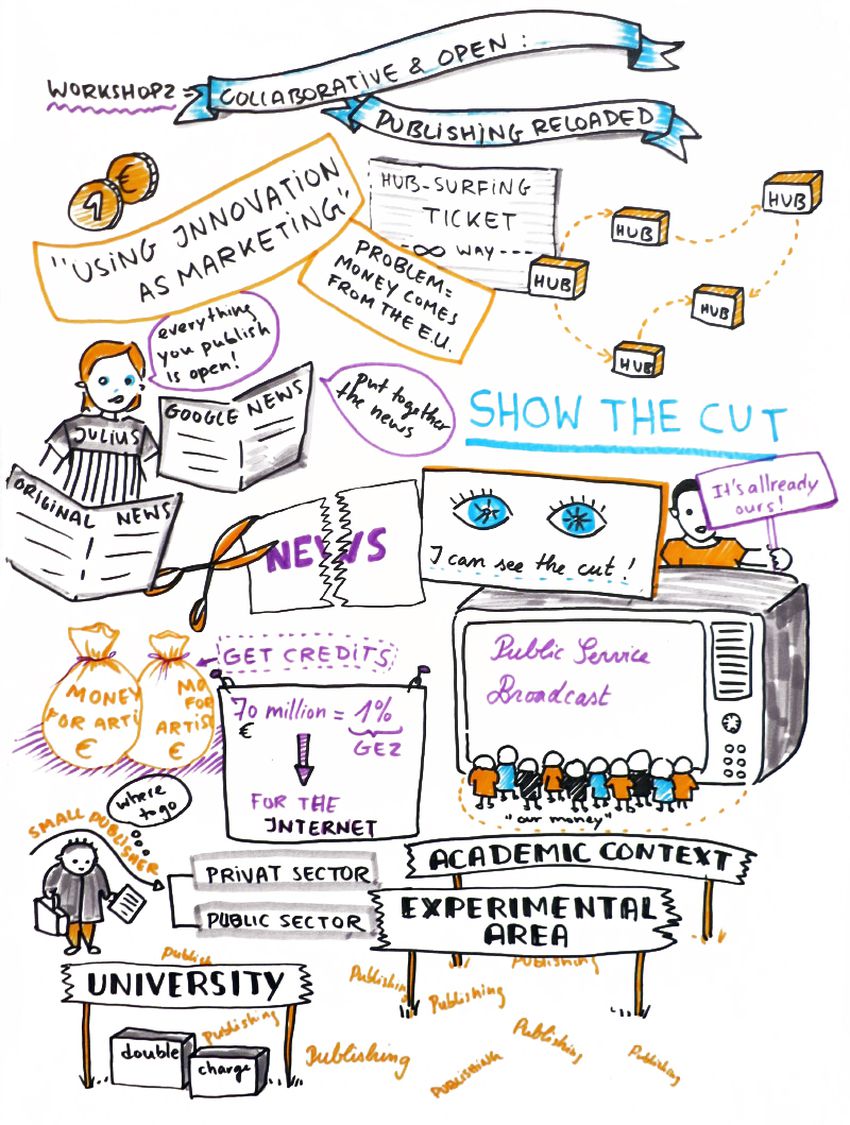 WORKSHOP2 =
COLLABORATIVE & OPEN :
PUBLISHING RELOADED
1
€
"USING INNOVATION
AS MARKETING"
PROBLEM=
MONEY COMES
FROM THE E.U.
HUB-SURFING
TICKET
-∞ WAY----
HUB
HUB
HUB
HUB
HUB
everything
you publish
is open!
JULIUS
GOOGLE NEWS
put together
the news
SHOW THE CUT
ORIGINAL NEWS
NEWS
I can see the cut !
It's allready
ours!
MONEY
FOR ARTI
€
MO
FOR
ARTIS
€
GET CREDITS
70 million = 1%
€
GEZ
FOR THE
INTERNET
Public Service
Broadcast
"our money"
where
to go
SMALL PUBLISHER
PRIVAT SECTOR
PUBLIC SECTOR
ACADEMIC CONTEXT
EXPERIMENTAL
AREA
publish
UNIVERSITY
Publishing
double
charge
Publishing
Publishing
Publishing
Publishing
Publishing
PUBLISHING
Publishing